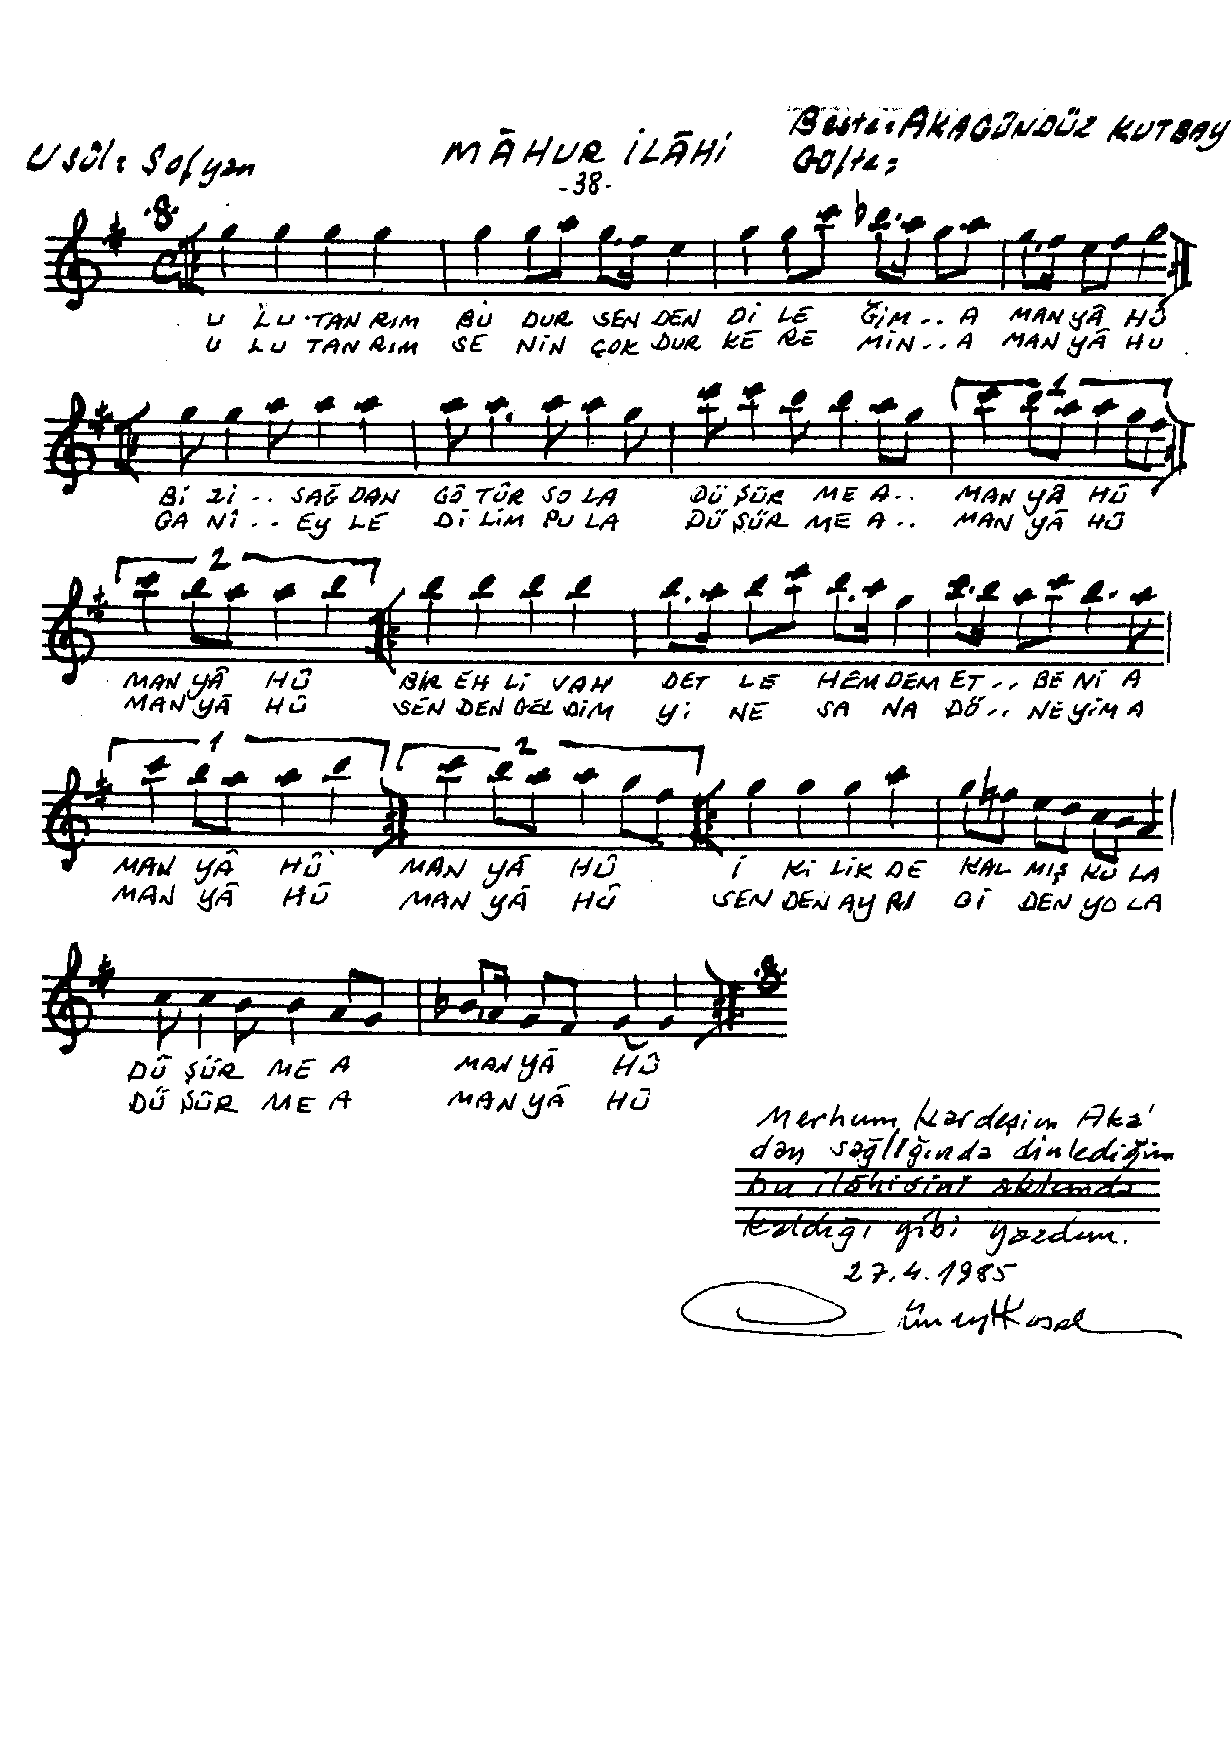 Usûl: Sofyan
MÂHUR İLÂHİ
Beste: AKAGÜNDÜZ KUTBAY
Güfte:
-38-
U LU TANRIM BU DUR SENDEN Dİ LE ĞİM..A MANYÂ HÛ
U LU TANRIM SE NİN ÇOK DUR KE RE MİN..A MANYÂ HU
1
Bİ Zİ.. SAĞ DAN GÖ TÜR SO LA DÜ ŞÜR ME A.. MAN YÂ HÛ
GA NÎ.. EY LE Dİ LİM PU LA DÜ ŞÜR ME A.. MAN YÂ HÛ
2
MANYÂ HÛ BİR EH Lİ VAH DET LE HEMDEM ET.. BE Nİ A
MANYÂ HÛ SEN DEN GEL DİM Yİ NE SA NA DÖ.. NEYİM A
1 2
MAN YÂ HÛ MAN YÂ HÛ İ Kİ LİK DE KAL MIŞ KU LA
MAN YÂ HÛ MAN YÂ HÛ SEN DEN AY RI Gİ DEN YO LA
DÜ ŞÜR ME A MANYÂ HÛ
DÜ ŞÜR ME A MANYÂ HÛ
Merhum Kardeşim Aka'
dan sağlığında dinlediğim
bu ilâhisini aklımda
kaldığı gibi yazdım.
27.4.1985
Cüneyt Kosal